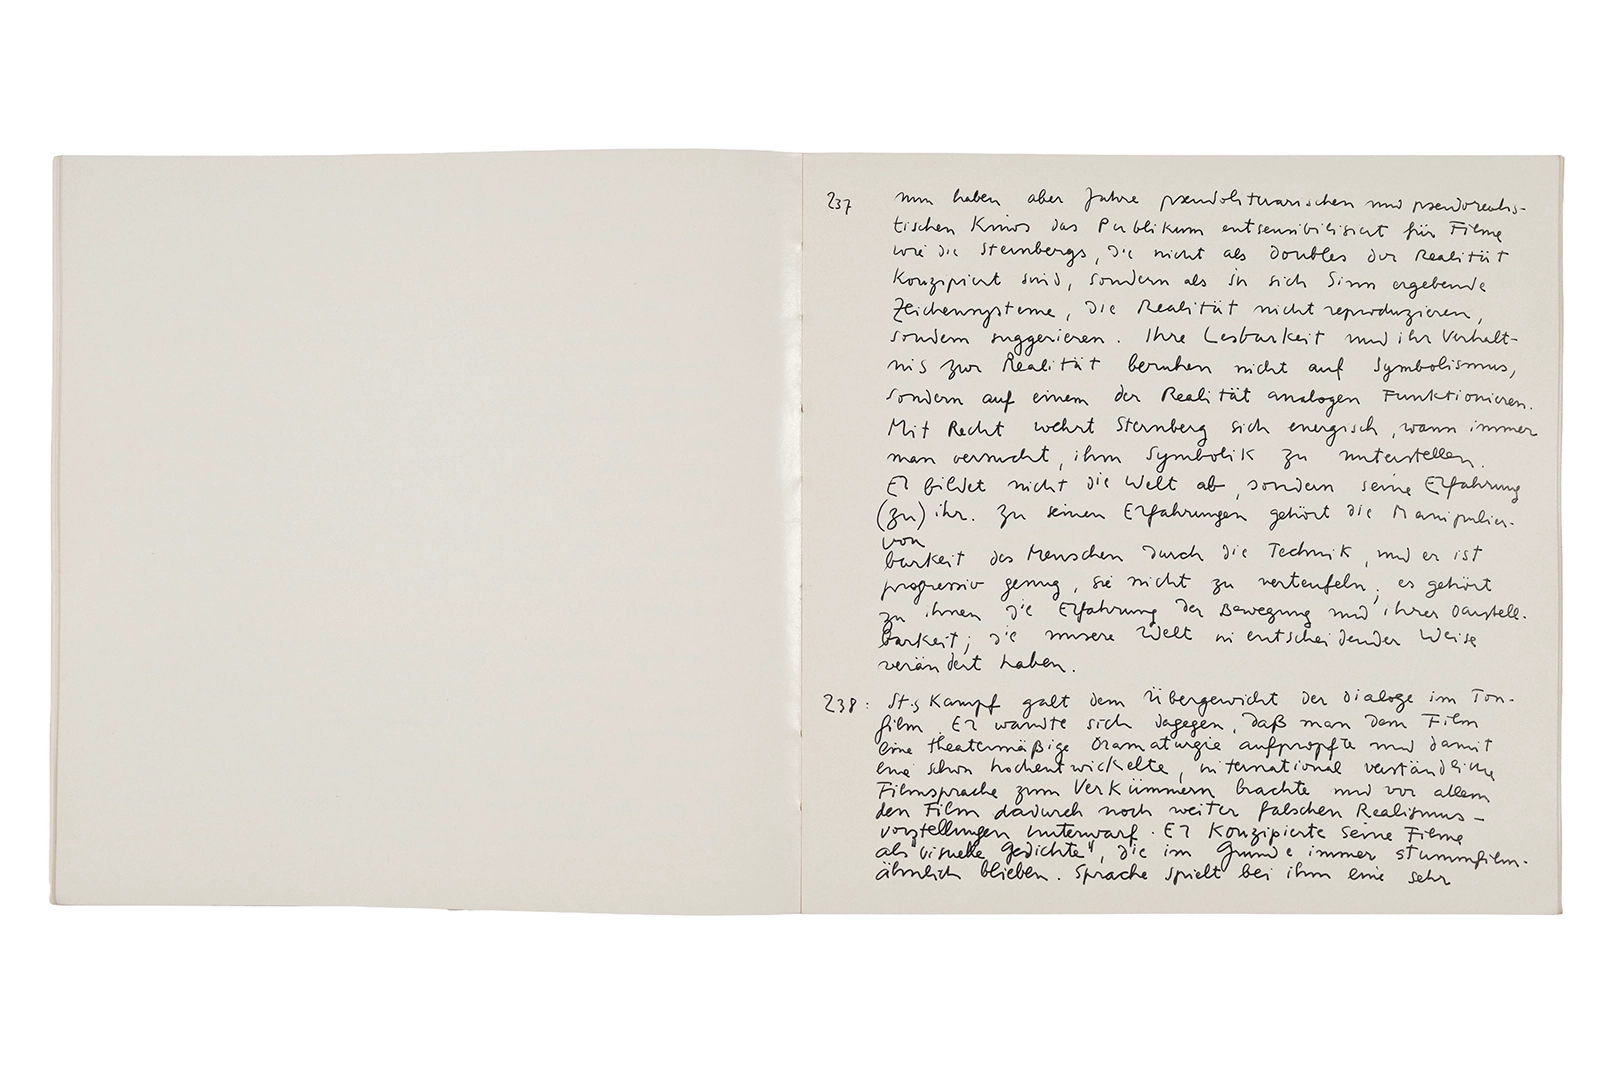 237 nun haben aber Jahre pseudoliterarischen und pseudorealis-
tischen Kinos das Publikum entsensibilisiert für Filme
wie die Sternbergs, die nicht als Doubles der Realität
konzipiert sind, sondern als in sich Sinn ergebende
Zeichensysteme, die Realität nicht reproduzieren,
sondern suggerieren. Ihre Lesbarkeit und ihr Verhält-
nis zur Realität beruhen nicht auf Symbolismus,
sondern auf einem der Realität analogen Funktionieren.
Mit Recht wehrt Sternberg sich energisch, wann immer
man versucht, ihm Symbolik zu unterstellen.
Er bildet nicht die Welt ab, sondern seine Erfahrung
(zu) ihr. Zu seinen Erfahrungen gehört die Manipulier-
von
barkeit des Menschen durch die Technik, und er ist
progressiv genug, sie nicht zu verteufeln; es gehört
zu ihnen die Erfahrung der Bewegung und ihrer Darstell-
barkeit; die unsere Welt in entscheidender Weise
verändert haben.
238: St.s Kampf galt dem Übergewicht der Dialoge im Ton-
film. Er wandte sich dagegen, daß man dem Film
eine theatermäßige Dramaturgie aufpropfte und damit
eine schon hochentwickelte, international verständliche
Filmsprache zum Verkümmern brachte und vor allem
den Film dadurch noch weiter falschen Realismus-
vorstellungen unterwarf. Er konzipierte seine Filme
als "visuelle Gedichte", die im Grunde immer stummfilm-
ähnlich blieben. Sprache spielt bei ihm eine sehr